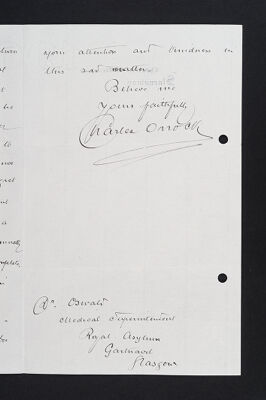 your attention and kindness in
this sad matter
Believe me
Yours faithfully
Charles Orrock
Dr. Oswald
Medical Superintendent
Royal Asylum
Gartnavel
Glasgow